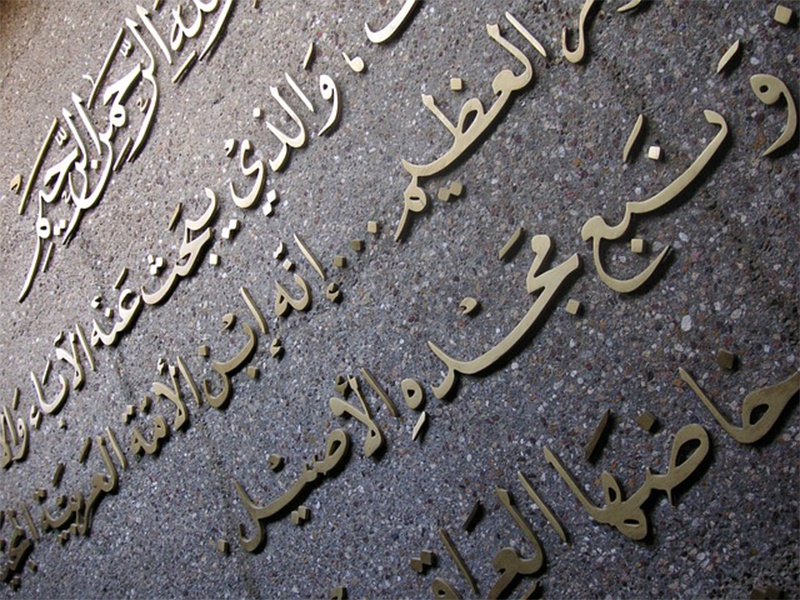 الله الرَّحمن الرَّحيم
وَالذيْ يبحَث عَنْه الآبَاء
العظيم ... إنّه إبْن الأمّة العَربيَّة
و نَبع مجْدهِ الأصيْل.
العراق